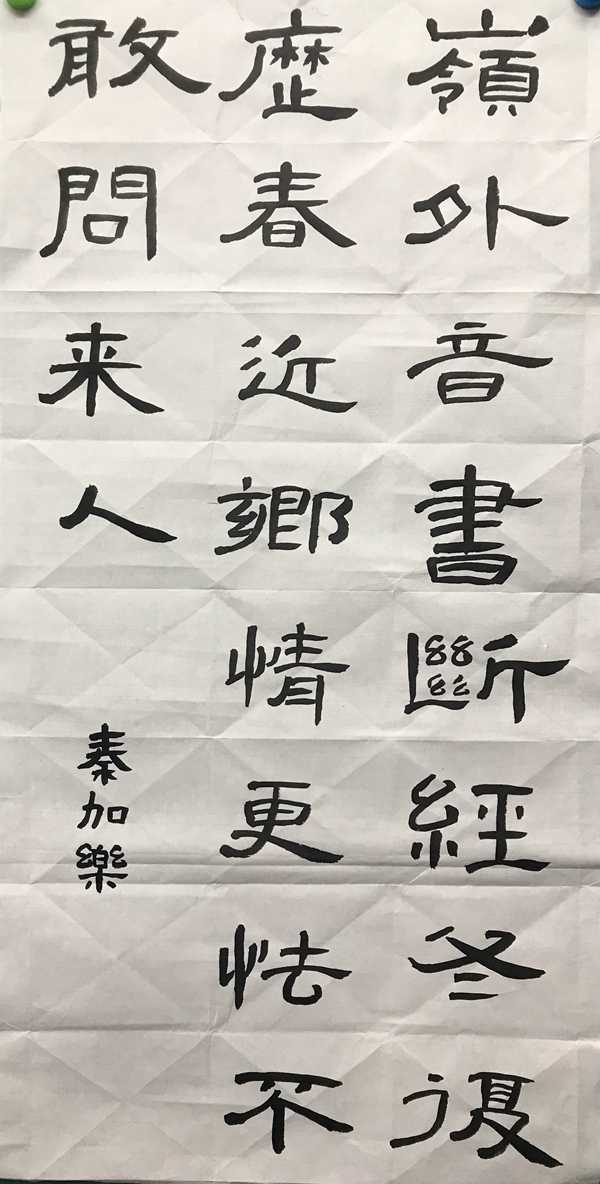 嶺外音書斷經冬復
歷春近鄉情更怯不
敢問来人
秦加樂